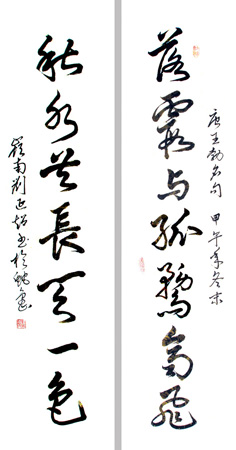 唐王勃名句 甲午年冬末
落霞与孤鹜齐飞
秋水共長天一色
嶺南劉延